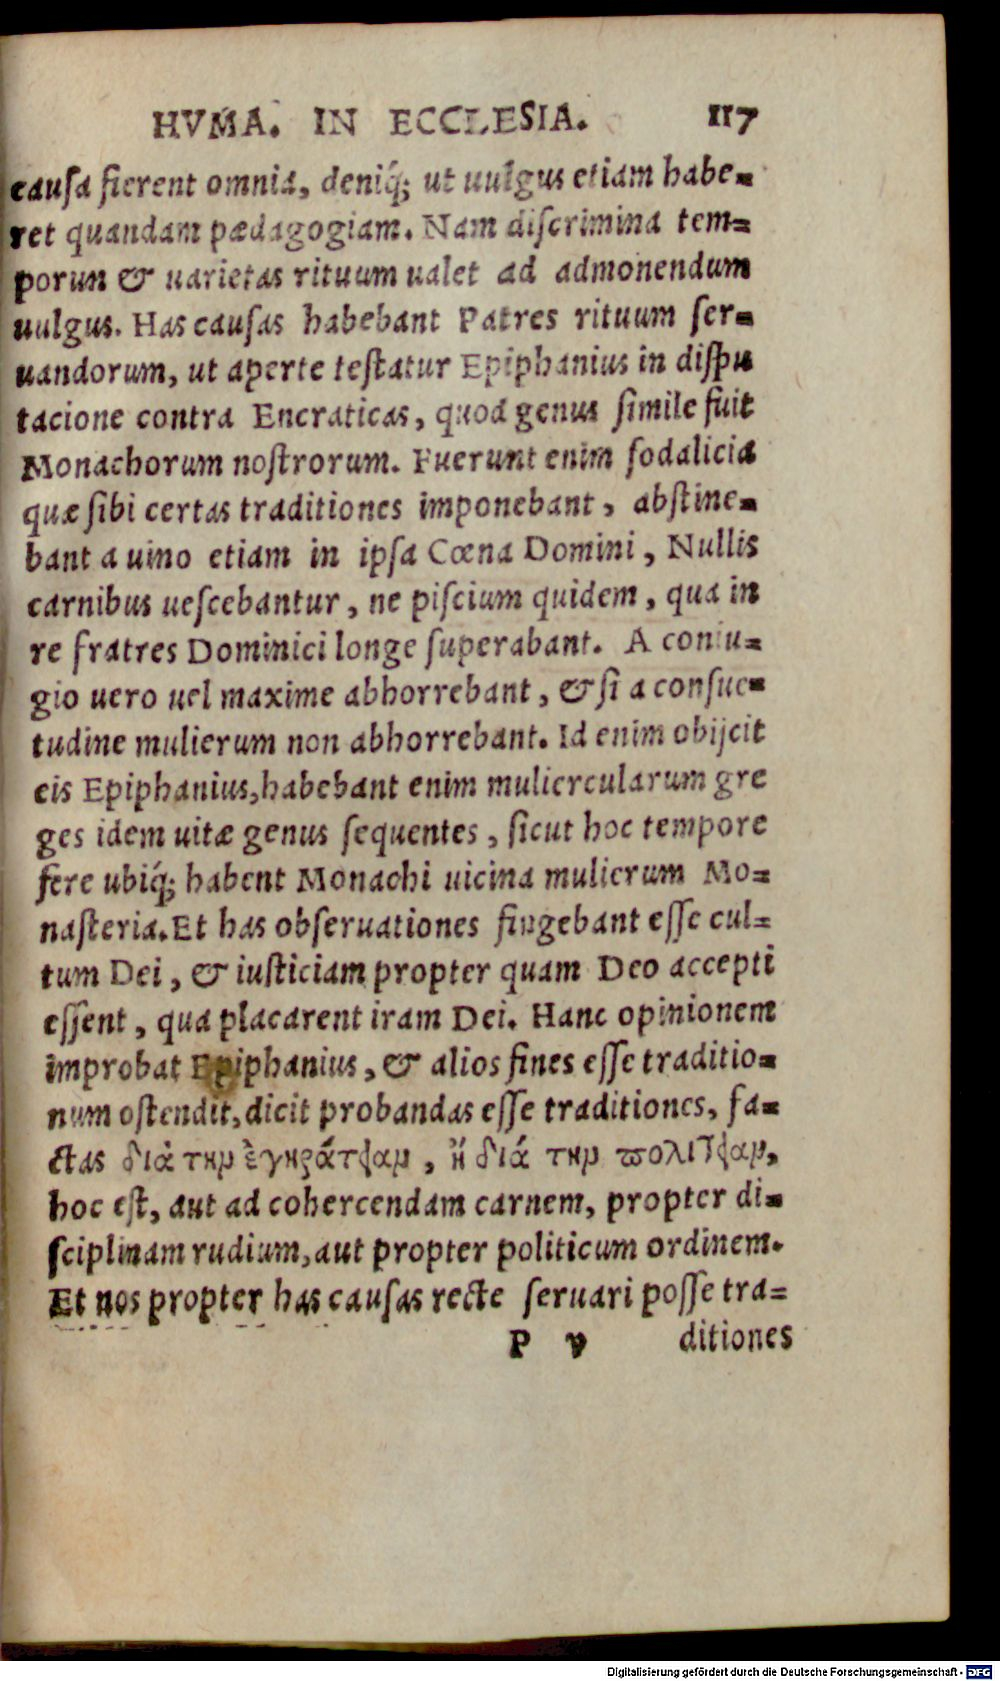 HVMA. IN ECCLESIA. 117
cauſa fierent omnia, deniq́; ut uulgus etiam habe-
ret quandam pædagogiam. Nam diſcrimina tem-
porun & uarietas rituum ualet ad admonendum
uulgus. Has cauſas habebant Patres rituum ſer-
uandorum, ut aperte teſtatur Epiphanius in diſpu
tacione contra Encraticas, quod genus ſimile fuit
Monachorum noſtrorum. Fuerunt enim ſodalicia
quæ ſibi certas traditiones imponebant, abſtine-
bant a uino etiam in ipſa Cœna Domini, Nullis
carnibus ueſcebantur, ne piſcium quidem, qua in
re fratres Dominici longe ſuperabant. A coniu-
gio uero uel maxime abhorrebant, & ſi a conſue-
tudine mulierum non abhorrebant. Id enim obijcit
eis Epiphanius, habebant enim muliercularum gre
ges idem uitæ genus ſequentes, ſicut hoc tempore
fere ubiq́; habent Monachi uicina mulierum Mo-
naſteria. Et has obſeruationes fingebant eſſe cul-
tum Dei, & iuſticiam propter quam Deo accepti
eſſent, qua placarent iram Dei. Hanc opinionem
improbat Epiphanius, & alios fines eſſe traditio-
num oſtendit, dicit probandas eſſe traditiones, fa-
ctas διὰ τὴν ἐγκράτειαν, ἢ διά την πολιτείαν,
hoc eſt, aut ad cohercendam carnem, propter di-
ſciplinam rudium, aut propter politicum ordinem.
Et nos propter has cauſas recte ſeruari poſſe tra-
P v ditiones
Digitalisierung gefördert durch die Deutsche Forschungsgemeinschaft - DFG